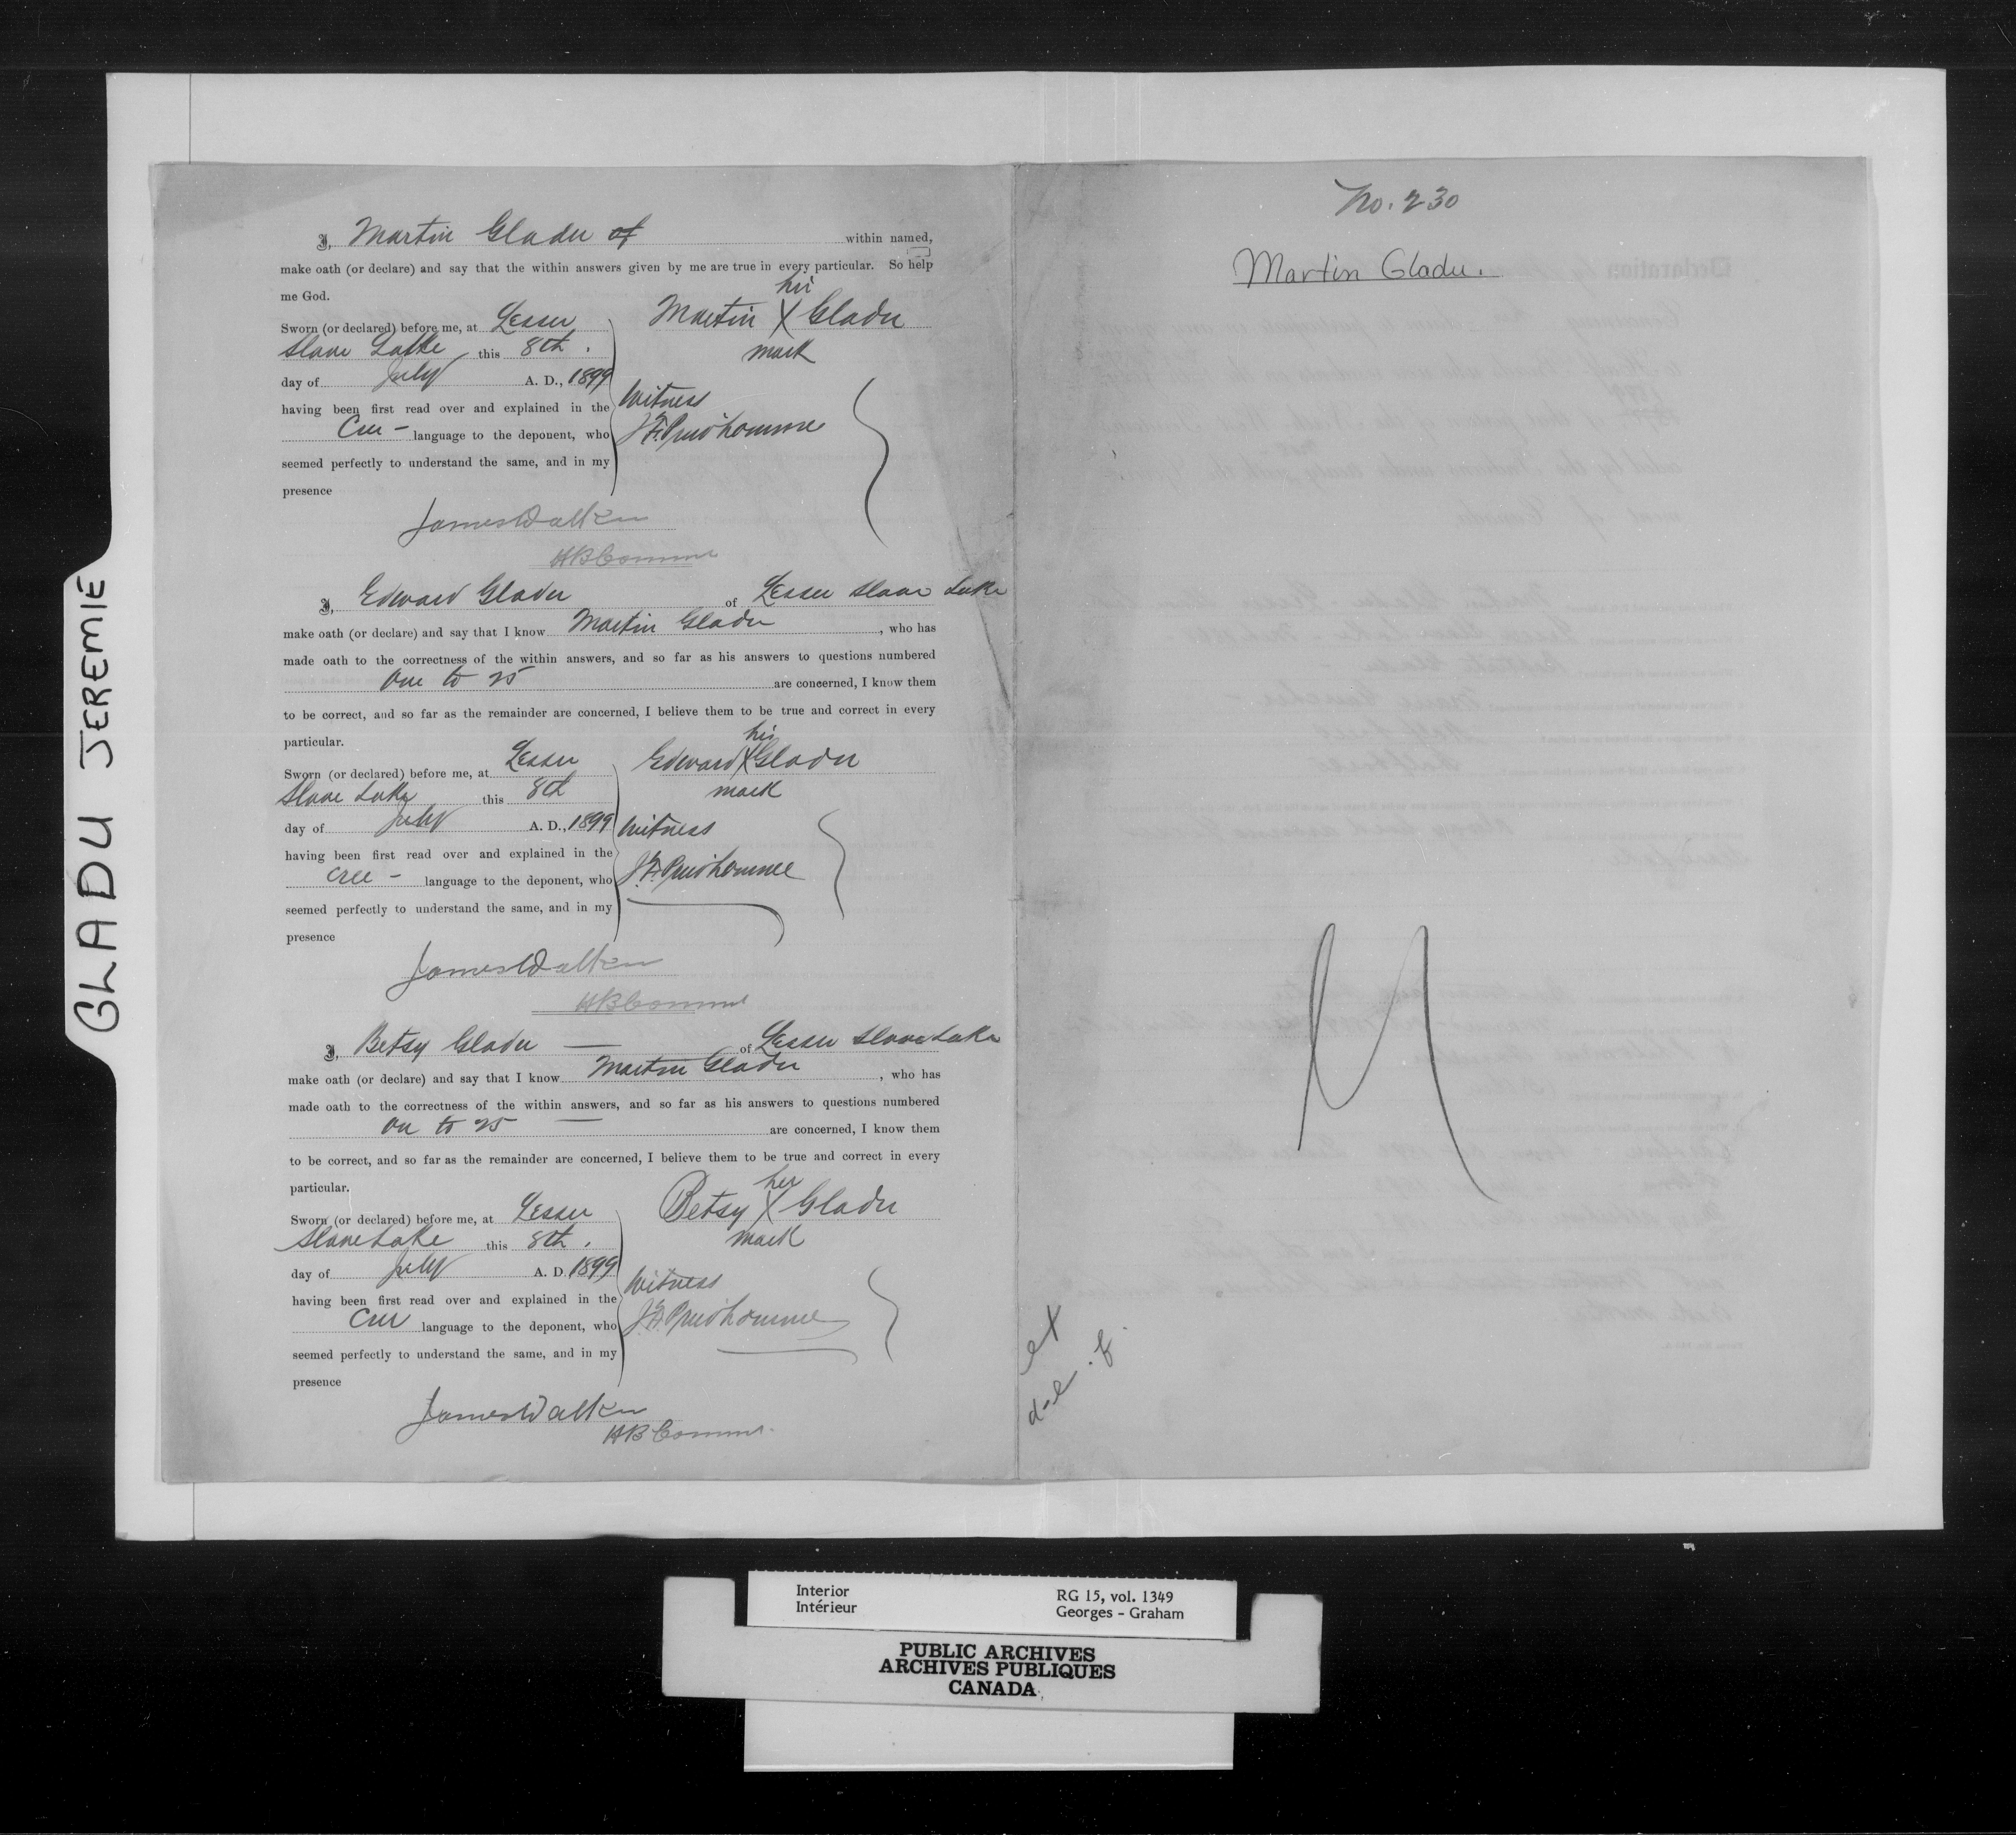 GLADU JEREMIE
I, Martin Gladu of within named,
make oath (or declare) and say that the within answers given by me are true in every particular. So help
me God.
his
Martin X Gladu
mark
Sworn (or declared) before me, at Lesser
Slave Lake this 8th.
day of July A. D., 1899
having been first read over and explained in the
Cree - language to the deponent, who
seemed perfectly to understand the same, and in my
presence
Witness
Prudhomme
James Walker
HB Commr
I, Edward Gladu of Lesser Slave Lake
make oath (or declare) and say that I know Martin Gladu, who has
made oath to the correctness of the within answers, and so far as his answers to questions numbered
One to 25 are concerned, I know them
to be correct, and so far as the remainder are concerned, I believe them to be true and correct in every
particular.
his
Edward X Gladu
mark
Sworn (or declared) before me, at Lesser
Slave Lake this 8th
day of July A. D., 1899
having been first read over and explained in the
Cree - language to the deponent, who
seemed perfectly to understand the same, and in my
presence
Witness
Prudhomme
James Walker
HB Commr
I, Betsy Gladu — of Lesser Slave Lake
make oath (or declare) and say that I know Martin Gladu, who has
made oath to the correctness of the within answers, and so far as his answers to questions numbered
On to 25 — are concerned, I know them
to be correct, and so far as the remainder are concerned, I believe them to be true and correct in every
particular.
her
Betsy X Gladu
mark
Sworn (or declared) before me, at Lesser
Slave Lake this 8th.
day of July A. D. 1899
having been first read over and explained in the
Cree language to the deponent, who
seemed perfectly to understand the same, and in my
presence
Witness
Prudhomme
James Walker
HB Commr.
No. 230
Martin Gladu.
M
ex
Interior
Intérieur
RG 15, vol. 1349
Georges - Graham
PUBLIC ARCHIVES
ARCHIVES PUBLIQUES
CANADA